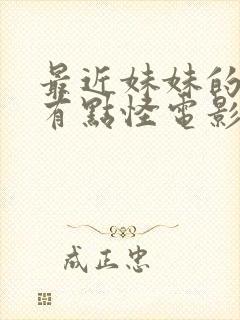 最近妹妹的
有點怪電影
成正忠